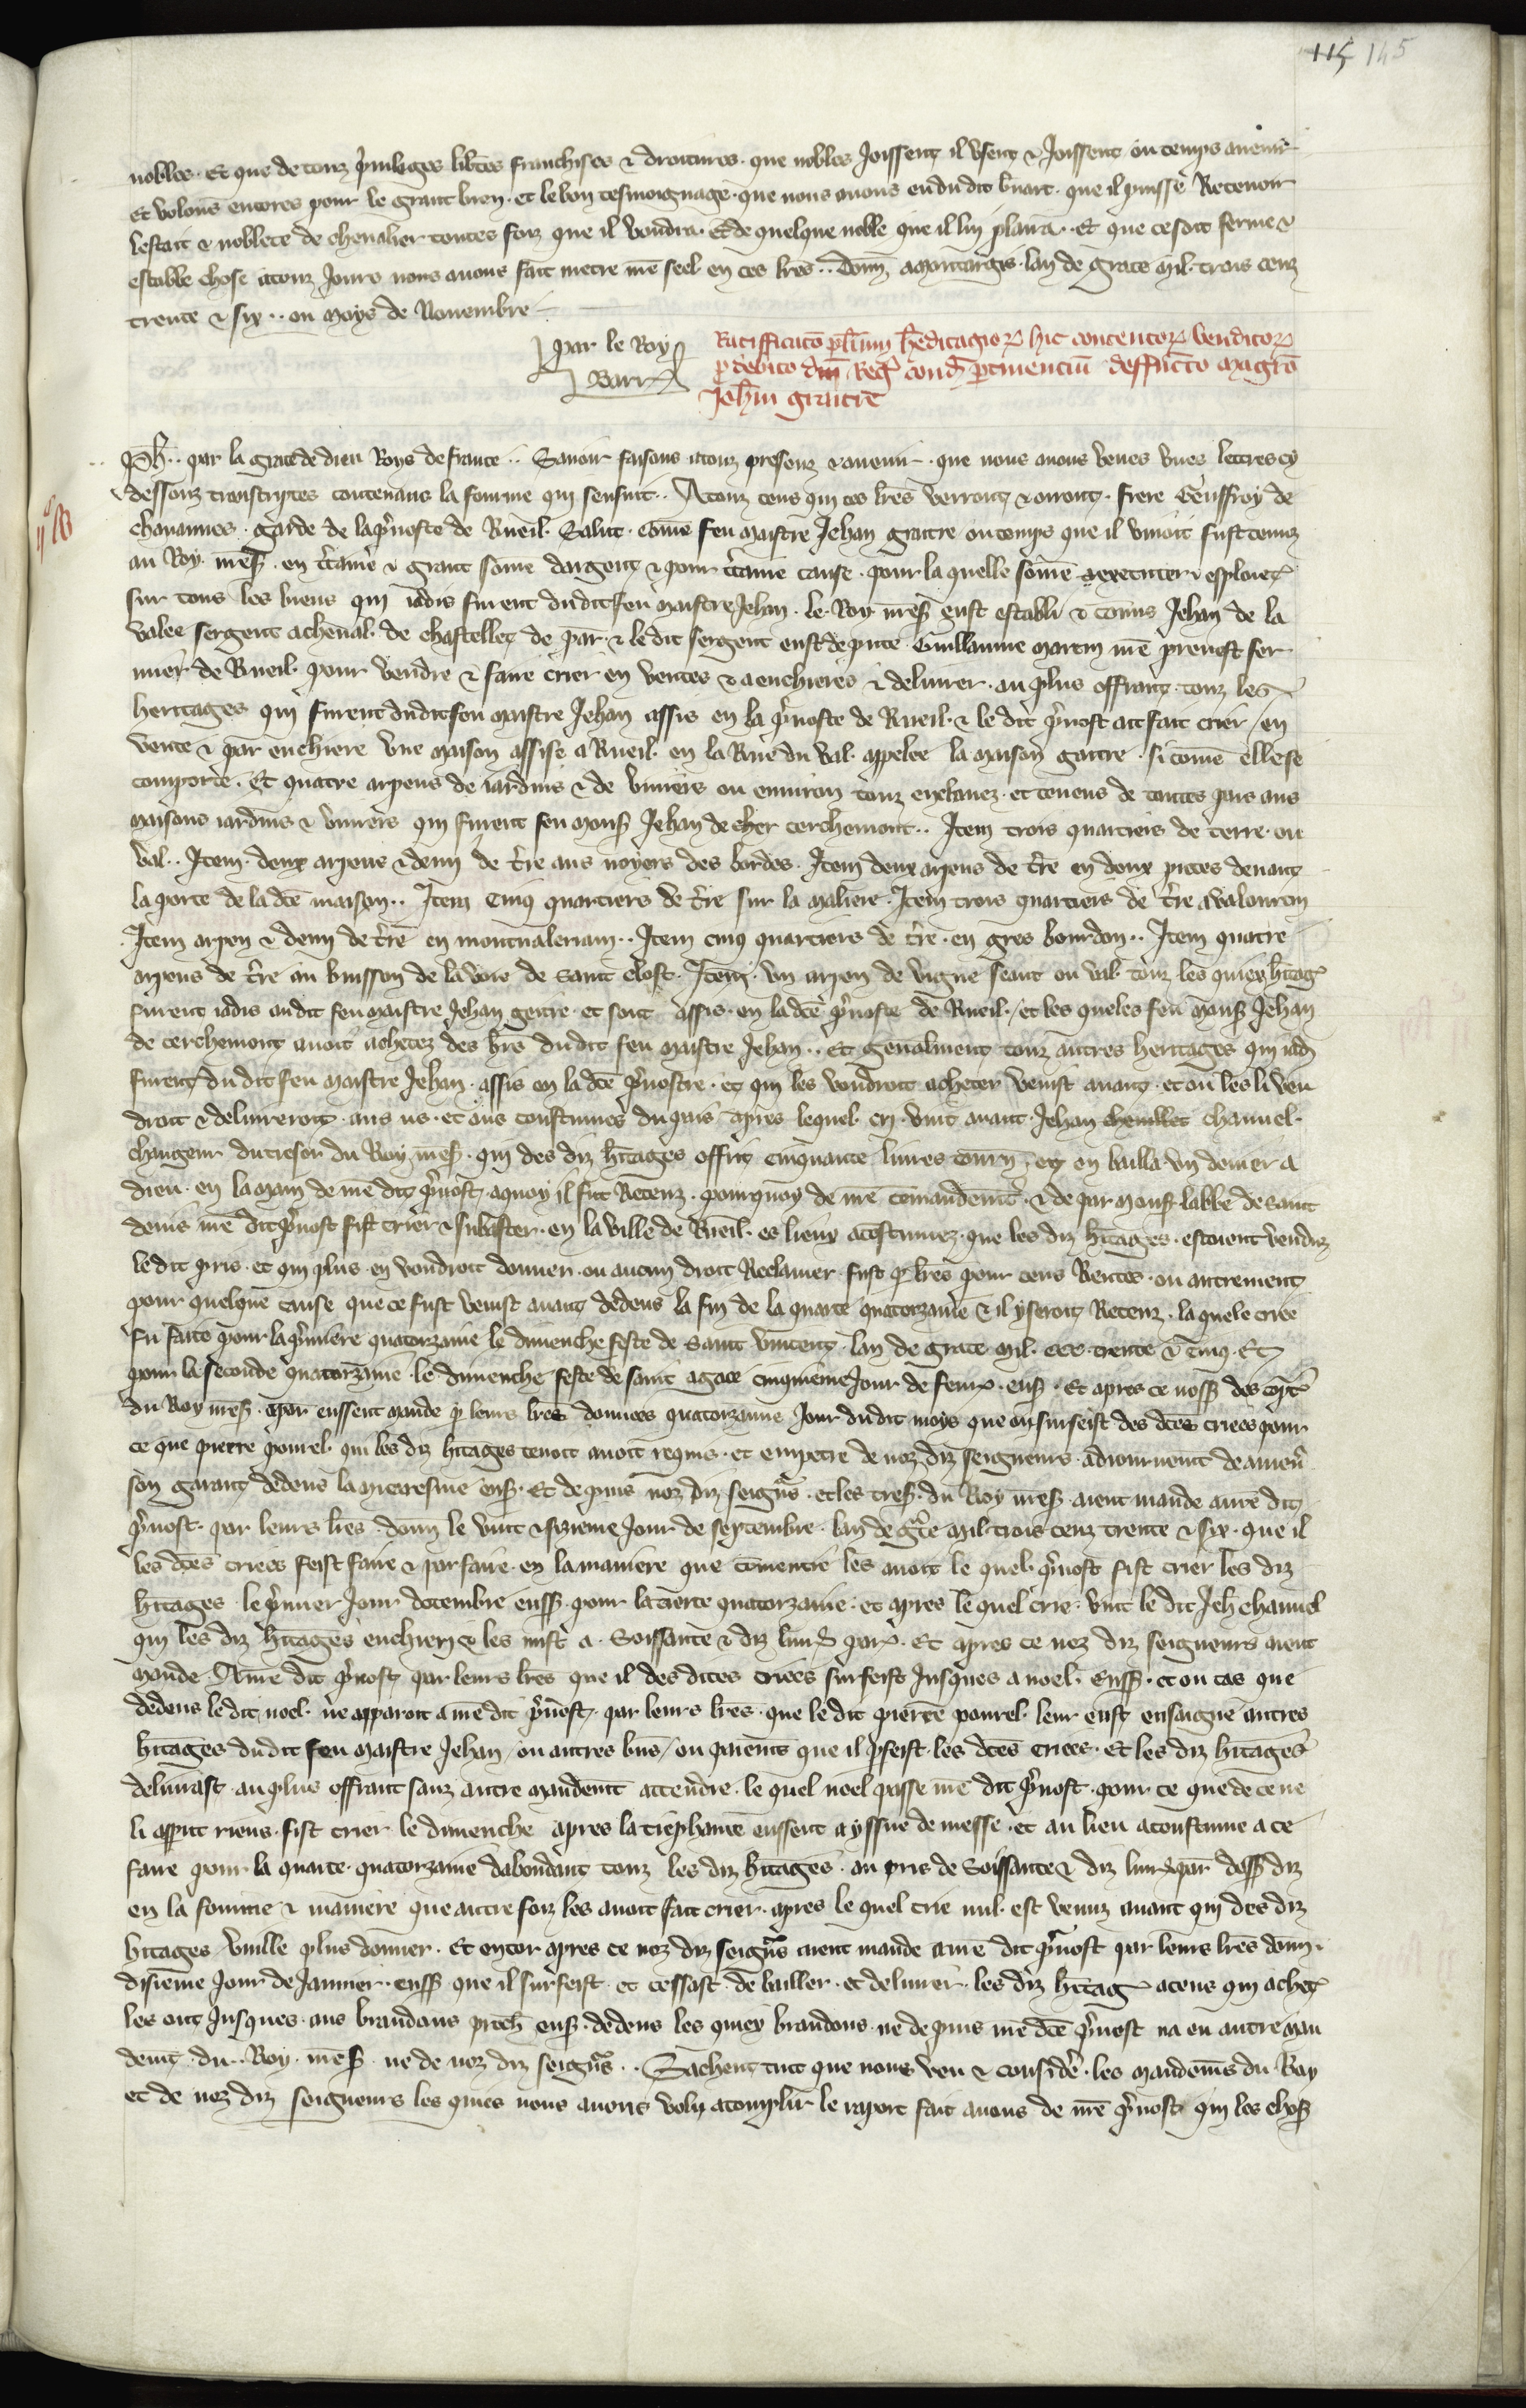 115 145
nobles. Et que de touz privileges libtes franchises & droitures. que nobles Joissent il usent & Joissent ou temps avenir
Et volons encores pour le grant bien. et le bon tesmoignage. que nous avons eu du dit huart. que il puisse Recevoir
lestait & noblece de chevalier toutes foiz que il voudra. Et de quelque noble que il lui plaira. Et que ce soit ferme &
estable chose a touz Jours nous avons fait metre nre seel en ces lres.. Donn a montargis. lan de grace mil. trois cenz
trente & six.. ou moys de Novembre
par le Roy
Barr
Ratifficato plium hereditagior hic contentor venditor
p debito dni Reg cond ptinenciu deffuncto magro
Johni graitre
Ph.. par la grace de dieu Roys de france.. Savoir faisons a touz presenz & avenir. que nous avons veues unes lettres cy
dessouz transcriptes contenans la fourme qui sensuit.. A touz ceus qui ces lres verront & orront. frere Geuffroy de
chavannes. garde de la pvoste de Rueil. Salut. come feu maistre Jehan graitre ou temps que il vivoit fust tenuz
au Roy nres. en ctaine & grant some dargent & pour ctaine cause. pour la quelle some executer & esploiter
sur tous les biens qui iadis furent du dit feu maistre Jehan. le Roy nres eust establi & comis Jehan de la
valee sergent a cheval. de chastellet de par. & le dit sergent eust depute Guillaume martin nre prevost fer
mier de Rueil. pour vendre & faire crier en ventes & a enchieres & delivrer. au plus offrant. touz les
heritages qui furent du dit feu maistre Jehan assis en la pvoste de Rueil. & le dit pvost ait fait crier en
vente & par enchiere une maison assise a Rueil. en la Rue du val. appelee la maison gaitre. si come elle se
comporte. Et quatre arpens de iardins & de viviers ou environ touz enclavez. et tenens de toutes pars aus
maisons iardins & viviers qui furent feu mons Jehan de cher cerchemont.. Item trois quartiers de terre. ou
val.. Item. deux arpens & demi de tre aus noyers des bordes. Item deux arpens de tre en deux pieces devant
la porte de la dce maison.. Item cinq quartiers de tre sur la maliere. Item trois quartiers de tre a valourein
Item arpen & demi de tre en montvaleriam.. Item cinq quartiers de tre. en gros bourdon.. Item quatre
arpens de tre au buisson de la voie de saint clost. Item. un arpen de vigne seant ou val. touz les quiex hitag
furent iadis au dit feu maistre Jehan geitre. et sont assis. en la dce pvoste de Rueil. et les queles feu mons Jehan
de cerchemont avoit achetez des hrs du dit feu maistre Jehan.. Et genalment touz autres heritages qui iad
furent du dit feu maistre Jehan. assis en la dce pvostre. et qui les voudroit acheter venist avant. et on les li ven
droit & delivreroit. aus us. et aus coustumes du pais apres lequel cri. vint avant. Jehan chevillet chanvel.
changeur du tresor du Roy nres. qui des diz hitages offrit cinquante livres tourn. et en bailla un denier a
dieu. en la main de nre dit pvost. a quoy il fut Recenz. pourquoy de nre comandemt. & de par mons. labbe de saint
denis nre dit pvost fist crier & subaster. en la ville de Rueil. es lieux acostumez. que les diz hitages. estoient venduz
le dit pris. et qui plus. en voudroit donner. ou aucun droit Reclamer. fust p lres pour cens Rentes. ou autrement
pour quelque cause que ce fust venist avant dedens la fin de la quarte quatorzaine & il y seroit Recenz. la quele criee
fu faite pour la pmiere quatorzaine le dimenche feste de saint vincent. lan de grace mil. ccc. trente & cinq. Et
pour la seconde quatorzaine. le dimenche feste de saint agace cinquieme Jour de fevr. ens. Et apres ce noss des copt
du Roy nres. a par eussent mande p leurs lres donnees quatorzaine Jour du dit moys que on surseist des dces criees pour
ce que pierre pourel. qui les diz hitages tenoit avoit requis. et empetre de noz diz seigneurs. adiournemt de amen
son garant dedens la micaresme ens. Et depuis noz diz seigns. et les tres. du Roy nres. aient mande a nre dit
pvost. par leurs lres. donn le vint & sizieme Jour de septembre. lan de gce mil trois cenz trente & six. que il
les dces criees feist faire & par faire. en la maniere que comencie les avoit le quel. pvost fist crier les diz
hitages. le pmier Jour doctembre enss. pour la tierce quatorzaine. et apres le quel crie. vint le dit Jeh chanvel
qui les diz hitages encheri & les mist a. Soissante & diz livr par. Et apres ce noz diz seigneurs aient
mande. A nre dit pvost par leurs lres que il des dites criees surseist Jusques a noel. Enss. et ou cas que
dedens le dit noel. ne apparoit a nre dit pvost. par leurs lres. que le dit pierre pourel. leur eust ensaigne autres
hitages du dit feu maistre Jehan. ou autres bns. ou paiemts que il pfeist. les dces criees. Et les diz hitages
delivrast. au plus offrant sanz autre mandemt attendre. le quel noel passe nre dit pvost. pour ce que de ce ne
li apput riens. fist crier le dimenche apres la tiephanie eussent a yssue de messe. et au lieu acoustume a ce
faire pour la quarte. quatorzaine dabondant touz les diz hitages. au pris de Soissante & diz livr par dess diz
en la fourme & maniere que autre foiz les avoit fait crier. apres le quel crie nul. est venuz avant qui des diz
hitages vuille plus donner. Et encor apres ce noz diz seigns aient mande a nre dit pvost par leurs lres donn
disieme Jour de Janvier. enss que il surseist. et cessast de bailler. et delivrer. les diz hitag a ceus qui achet
les ont Jusques. aus brandons proch ens. dedens les quiex brandons. ne depuis nre dce pvost na eu autre man
demt. du.. Roy. nres. ne de noz diz seigns.. Sachent tuit que nous veu & considere. les mandemts du Roy
et de noz diz seigneurs les quiex nous avons volu acomplir le raport fait avons de nre pvost qui les chos